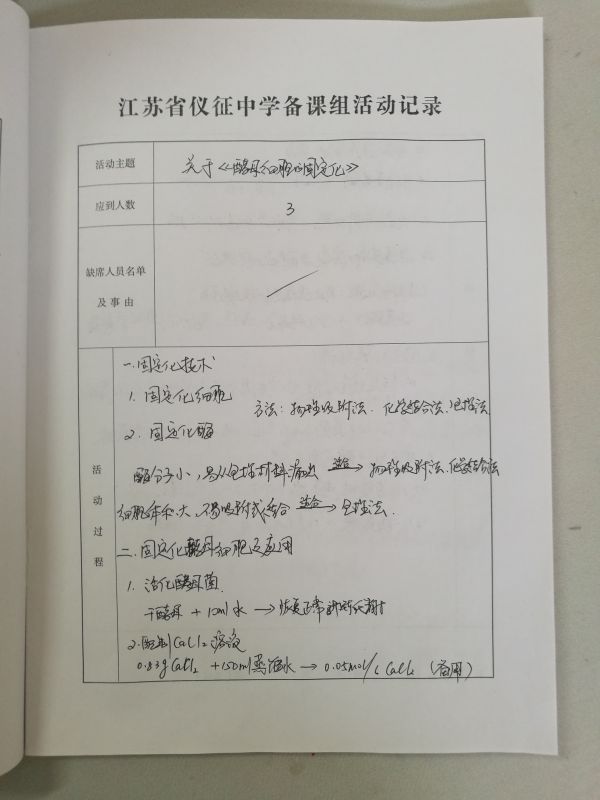 江苏省仪征中学备课组活动记录
活动主题
关于《酵母细胞的固定化》
应到人数
3
缺席人员名单
及事由
活动过程
一.固定化技术
1. 固定化细胞
方法：物理吸附法. 化学结合法.包埋法
2. 固定化酶
酶分子小，易从包埋材料漏出 适合→ 物理吸附法.化学结合法
细胞体积大，不易吸附或结合 适合→ 包埋法.
二.固定化酵母细胞及应用
1. 活化酵母菌
干酵母 + 10ml 水 → 恢复正常
2.配制CaCl2溶液
0.83g CaCl2 +150ml蒸馏水 → 0.05mol/L CaCl2 (备用)